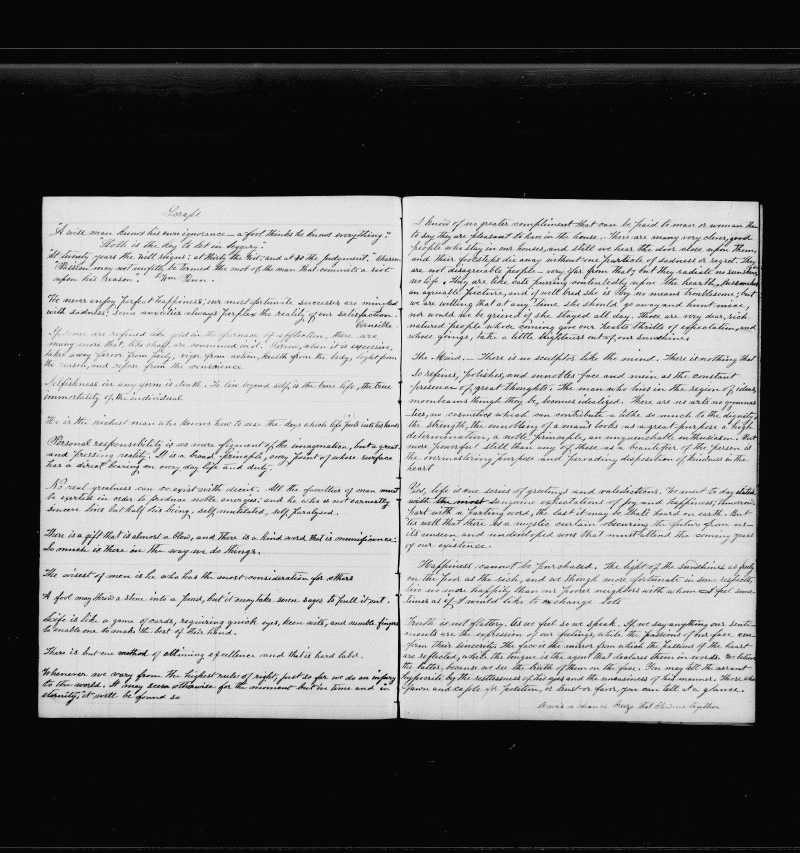 Scraps
"A will man knows his own ignorance — a fool thinks he knows everything."
"Sloth is the key to let in beggary."
"At twenty years the will reigns; at thirty the wit; and at 40 the judgment."
"Passion may not unfitly be termed the mob of the man that commits a riot
upon his reason." Wm Penn.
We never enjoy perfect happiness; our most fortunate successes are mingled
with sadness; some anxieties always perplex the reality of our satisfaction.
Corneille
If some are refined like gold in the furnace of affliction, there are
many more that, like chaff, are consumed in it. Sorrow, when it is excessive,
takes away fervor from piety, vigor from action, health from the body, light from
the reason, and repose from the conscience
Selfishness in any form is death. To live beyond self, is the true life, the true
immortality of the individual
He is the richest man who knows how to use the days which life puts into his hands
Personal responsibility is no mere figment of the imagination, but a great
and pressing reality. It is a broad principle, every point of whose surface
has a direct bearing on every day life and duty.
No real greatness can co-exist with deceit. All the faculties of man must
be exerted in order to produce noble energies; and he who is not earnestly
sincere lives but half his being, self mutilated, self paralyzed.
There is a gift that is almost a blow, and there is a kind word that is munificence:
So much is there in the way we do things.
The wisest of men is he who has the most consideration for others
A fool may throw a stone into a pond, but it may take seven sages to pull it out.
Life is like a game of cards, requiring quick eyes, keen wits, and nimble fingers
to enable one to make the best of their hand.
There is but one method of attaining excellence and that is hard labor.
Whenever we vary from the highest rule of right, just so far we do an injury
to the world. It may seem otherwise for the moment but in time and in
eternity, it will be found so
I know of no greater compliment that can be paid to man or woman than
to say they are pleasant to have in the house. There are many very clever, good
people who stay in our houses, and still we hear the door close upon them,
and their footsteps die away without one particle of sadness or regret. They
are not disagreeable people — very far from that; but they radiate no sunshine,
no life. They are like cats purring contentedly upon the hearth
an agreeable picture, and if well bred she is by no means troublesome; but
we are willing that at any time she should go away and hunt mice,
nor would we be grieved if she stayed all day. Those are very dear, rich
natured people whose coming give our hearts thrills of expectation, and
whose goings, take a little brightness out of our sunshine.
The Mind. — There is no sculptor like the mind. There is nothing that
so refines, polishes, and ennobles face and mein as the constant
presence of great thoughts. The man who lives in the region of ideas,
moonbeams though they be, becomes idealized. There are no arts no gymnas-
tics, no cosmetics which can contribute a tithe so much to the dignity,
the strength, the ennobling of a man's looks as a great purpose a high
determination, a noble principle, an unquenchable enthusiasm. But
more powerful still than any of these as a beautifier of the person is
the overmastering purpose and pervading disposition of kindness in the
heart
Yes, life is one series of greetings and valedictions. We meet to day
with the most sanguine expectations of joy and happiness; tomorrow,
part with a parting word, the last it may be that's heard on earth. But
'tis well that there is a mystic curtain obscuring the future from us —
its unseen and undeveloped woes that must attend the coming years
of our existence.
Happiness cannot be purchased. The light of the sunshines as freely
on the poor as the rich, and we though more fortunate in some respects,
live no more happily than our poorer neighbors with whom I feel some-
times as if I would like to exchange lots
Truth is not flattery. As we feel so we speak. If we say anything our senti-
ments are the expression of our feelings, while the passions of our face con-
firm their sincerity. The face is the mirror from which the passions of the heart
are reflected, while the tongue is the agent that declares them in words. We believe
the latter, because we see the truth of them in the face. You may tell the arrant
hypocrite by the restlessness of his eyes and the uneasiness of his manner. Those who
fawn and cajole for position, or trust or favor, you can tell at a glance.
It was a chance breeze that us together